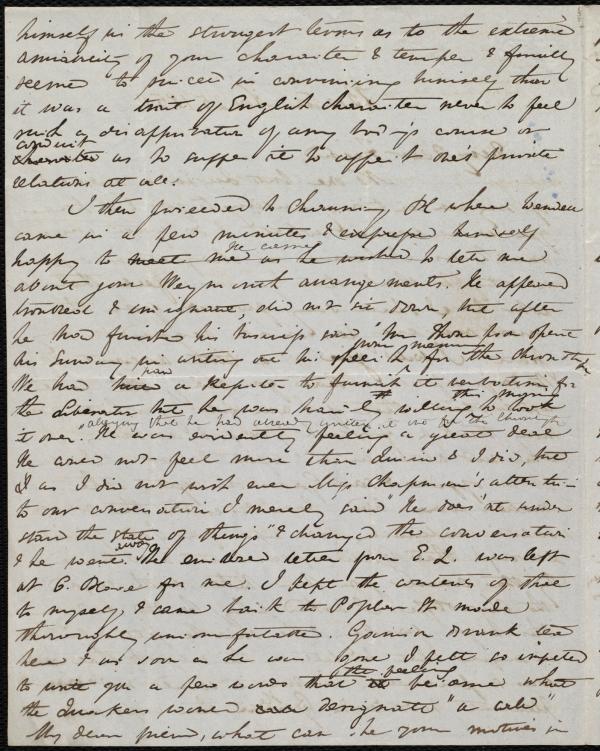 himself in the strongest terms as to the extreme
amiability of your character & temper & finally
seemed to succeed in convincing himself that
it was a trait of English character never to feel
such a disapprobation of any body's course or
conduct
as to suffer it to affect one's private
relations at all.
I then proceeded to Chauncy Pl where Wendell
came in a few minutes & expressed himself
He came
happy to meet me as he wished to tell me
about your Weymouth arrangements. He appeared
troubled & indignant, did not sit down, but after
he had finished his business said "Mr Thompson spent
from memory
his Sunday in writing out his speech for the Chronotype
We had hired a Reporter to furnish it verbatim for
this morning
the Liberator but he was hardly willing to look
"alleging that he had already written it out for the Chronotype
it over. He was evidently feeling a great deal
He could not feel more than Quincy & I did, but
& as I did not wish even Mrs Chapman's attention
to our conversation I merely said "He does'nt under
stand the state of things" & changed the conversation
away
& he went. The enclosed letter from E. L. was left
at C. Place for me. I kept the contents of that
to myself & came back to Poplar St made
thoroughly uncomfortable. Garrison drank tea
here & as soon as he was gone I felt so impelled
the feeling
to write you a few words that it became what
the Quakers would designate "a call"
My dear friend, what can be your motives in